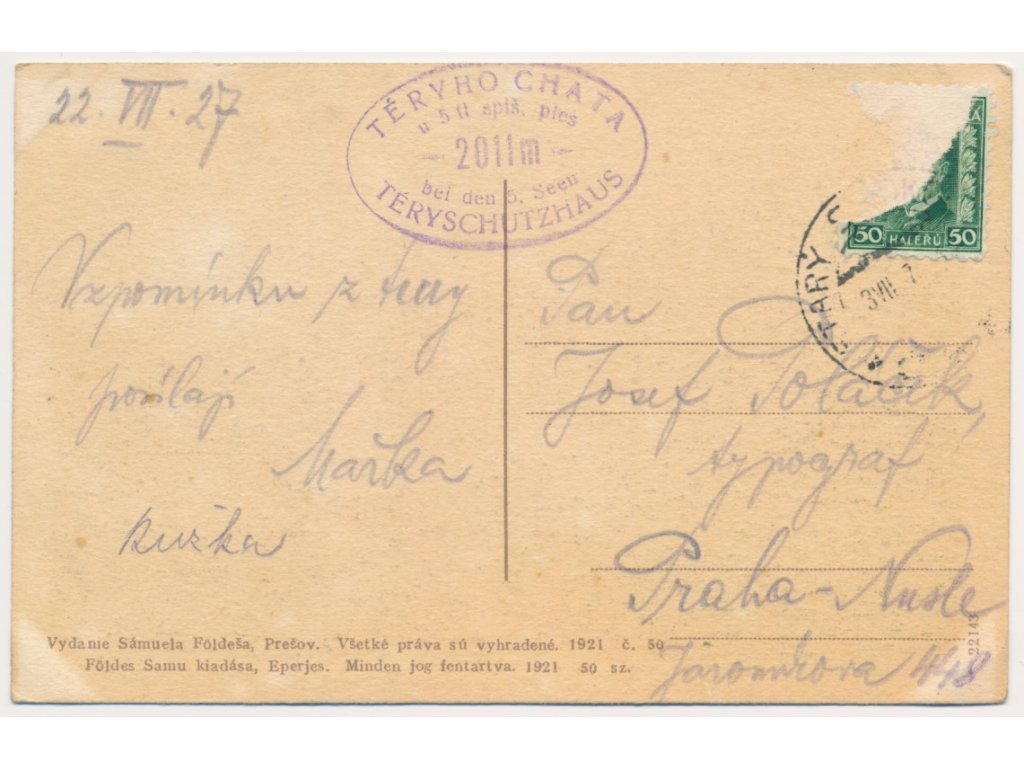 22. VII. 27
TÉRYHO CHATA
u 5 ti spiš. ples
- 2011m -
bei den 5. Seen
TÉRYSCHUTZHAUS
50 HALERŮ 50
STARY
Vzpomínku z tury
posílají
Mařka
Ruzka
Pan
Josef Poláček,
typograf
Praha-Nusle
Jaromírova 448
Vydanie Sámuela Földeša, Prešov. Všetké práva sú vyhradené. 1921 č. 50
Földes Samu kiadása, Eperjes. Minden jog fentartva. 1921 50 sz.
22143